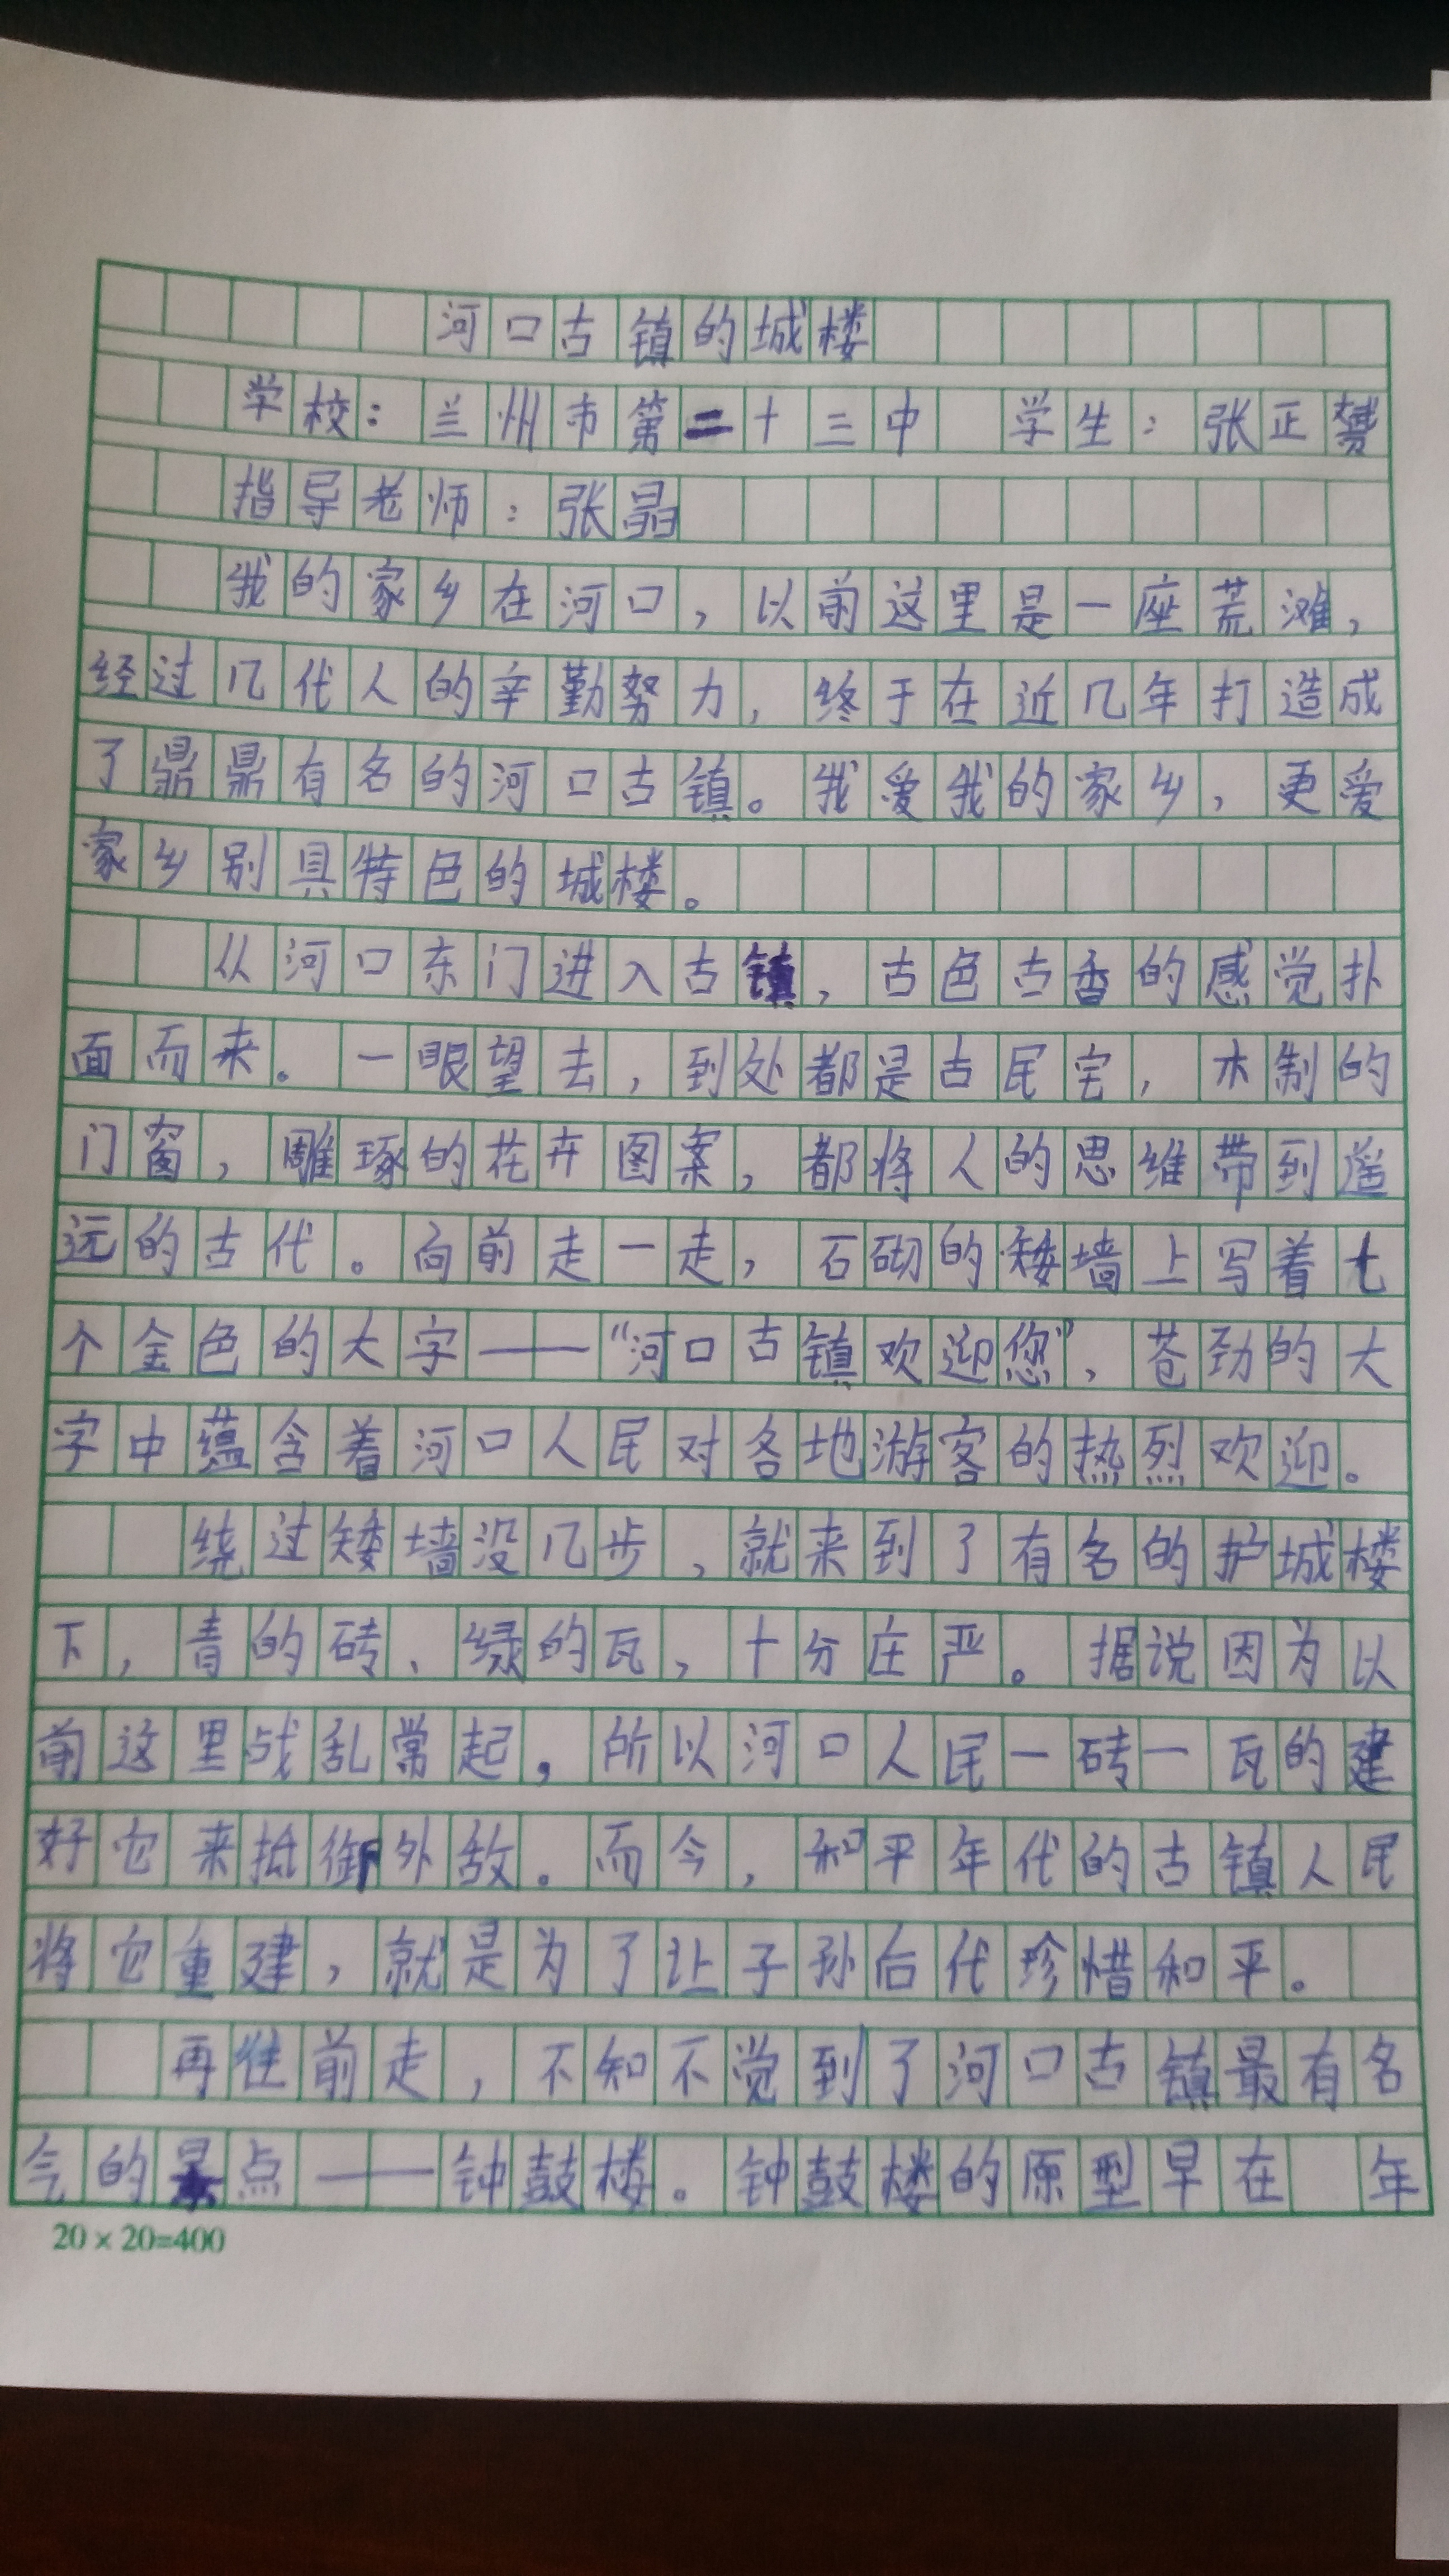 河口古镇的城楼
学校：兰州市第二十三中 学生：张正赟
指导老师：张晶
我的家乡在河口，以前这里是一座荒滩，
经过几代人的辛勤努力，终于在近几年打造成
了鼎鼎有名的河口古镇。我爱我的家乡，更爱
家乡别具特色的城楼。
从河口东门进入古镇，古色古香的感觉扑
面而来。一眼望去，到处都是古民宅，木制的
门窗，雕琢的花卉图案，都将人的思维带到遥
远的古代。向前走一走，石砌的矮墙上写着七
个金色的大字——“河口古镇欢迎您”，苍劲的大
字中蕴含着河口人民对各地游客的热烈欢迎。
绕过矮墙没几步，就来到了有名的护城楼
下，青的砖、绿的瓦，十分庄严。据说因为以
前这里战乱常起，所以河口人民一砖一瓦的建
好它来抵御外敌。而今，和平年代的古镇人民
将它重建，就是为了让子孙后代珍惜和平。
再往前走，不知不觉到了河口古镇最有名
气的景点——钟鼓楼。钟鼓楼的原型早在 年
20×20=400